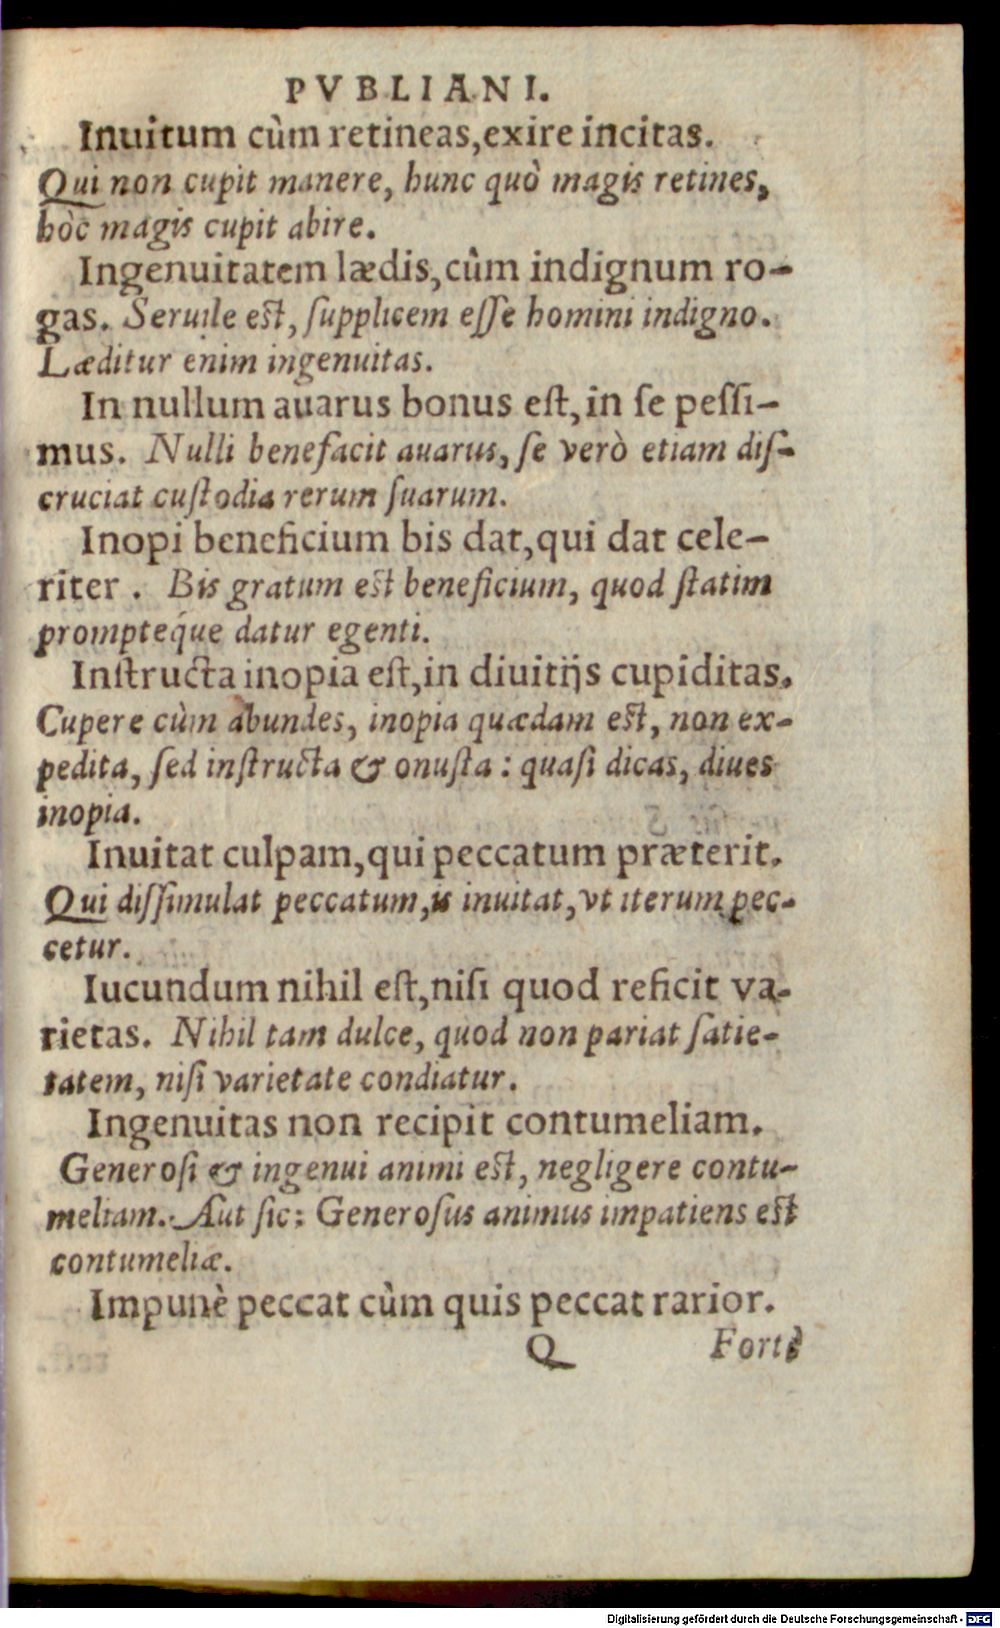 PVBLIANI.
Inuitum cùm retineas,exire incitas.
Qui non cupit manere, hunc quò magis retines,
hòc magis cupit abire.
Ingenuitatem lædis,cûm indignum ro-
gas. Seruile eſt, ſupplicem eſſe homini indigno.
Læditur enim ingenuitas.
In nullum auarus bonus eſt,in ſe peſſi-
mus. Nulli benefacit auarus, ſe verò etiam diſ-
cruciat cuſtodia rerum ſuarum.
Inopi beneficium bis dat,qui dat cele-
riter. Bis gratum eſt beneficium, quod ſtatim
prompteq́ue datur egenti.
Inſtructa inopia eſt,in diuitijs cupiditas.
Cupere cùm abundes, inopia quædam eſt, non ex-
pedita, ſed inſtructa & onuſta: quaſi dicas, diues
inopia.
Inuitat culpam,qui peccatum præterit.
Qui diſſimulat peccatum,is inuitat,vt iterum pec-
cetur.
Iucundum nihil eſt,niſi quod reficit va-
rietas. Nihil tam dulce, quod non pariat ſatie-
tatem, niſi varietate condiatur.
Ingenuitas non recipit contumeliam.
Generoſi & ingenui animi eſt, negligere contu-
meliam. Aut ſic: Generoſus animus impatiens eſt
contumeliæ.
Impunè peccat cùm quis peccat rarior.
Q Fortè
Digitalisierung gefördert durch die Deutsche Forschungsgemeinschaft - DFG